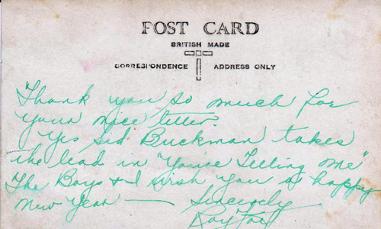 POST CARD
BRITISH MADE
CORRESPONDENCE ADDRESS ONLY
Thank you so much for
your nice letter.
Yes Sid Buckman takes
the lead in "Youre Telling me"
The Boys & I wish you a happy
new Year — Sincerely
Roy Fox